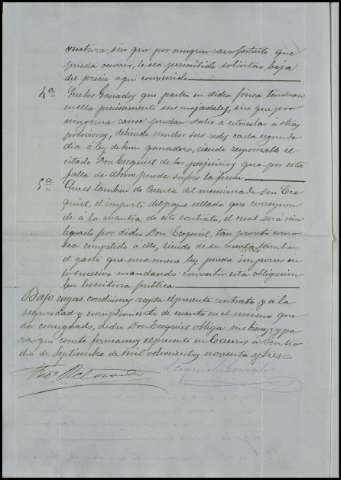 rescatara, sin que por ningun caso fortuito que
pueda ocurrir, le sea permitido solicitar baja
del precio aqui convenido
4ª Que los Ganados que pasten en dicha finca tendran
en ella precisamente sus majadales, sin que por
ninguna causa puedan salir á estercolar á otras
posesiones, debiendo mudar sus redes cada segundo
dia á ley de buen ganadero, siendo responsable el
citado Don Ezequiel de los perjuicios que por esta
falta de abono pueda sufrir la finca
5ª Que es tambien de cuenta del mencionado Don Eze-
quiel, el importe del papel sellado que correspon-
de á la cuantia de este contrato, el cual será rein-
tegrado por dicho Don Ezequiel, tan pronto como sea
compelido á ello, siendo de su cuenta tambien
el gasto que una nueva ley pueda imponer en
lo sucesivo mandando convertir esta obligacion
en Escritura publica
Bajo cuyas condiciones acepta el presente contrato y á la
seguridad y cumplimiento de cuanto en el mismo que-
da consignado, dicho Don Ezequiel obliga sus bienes; y pa-
ra que conste firmamos el presente en Caceres á
dia de Septiembre de mil ochocientos noventa y tres